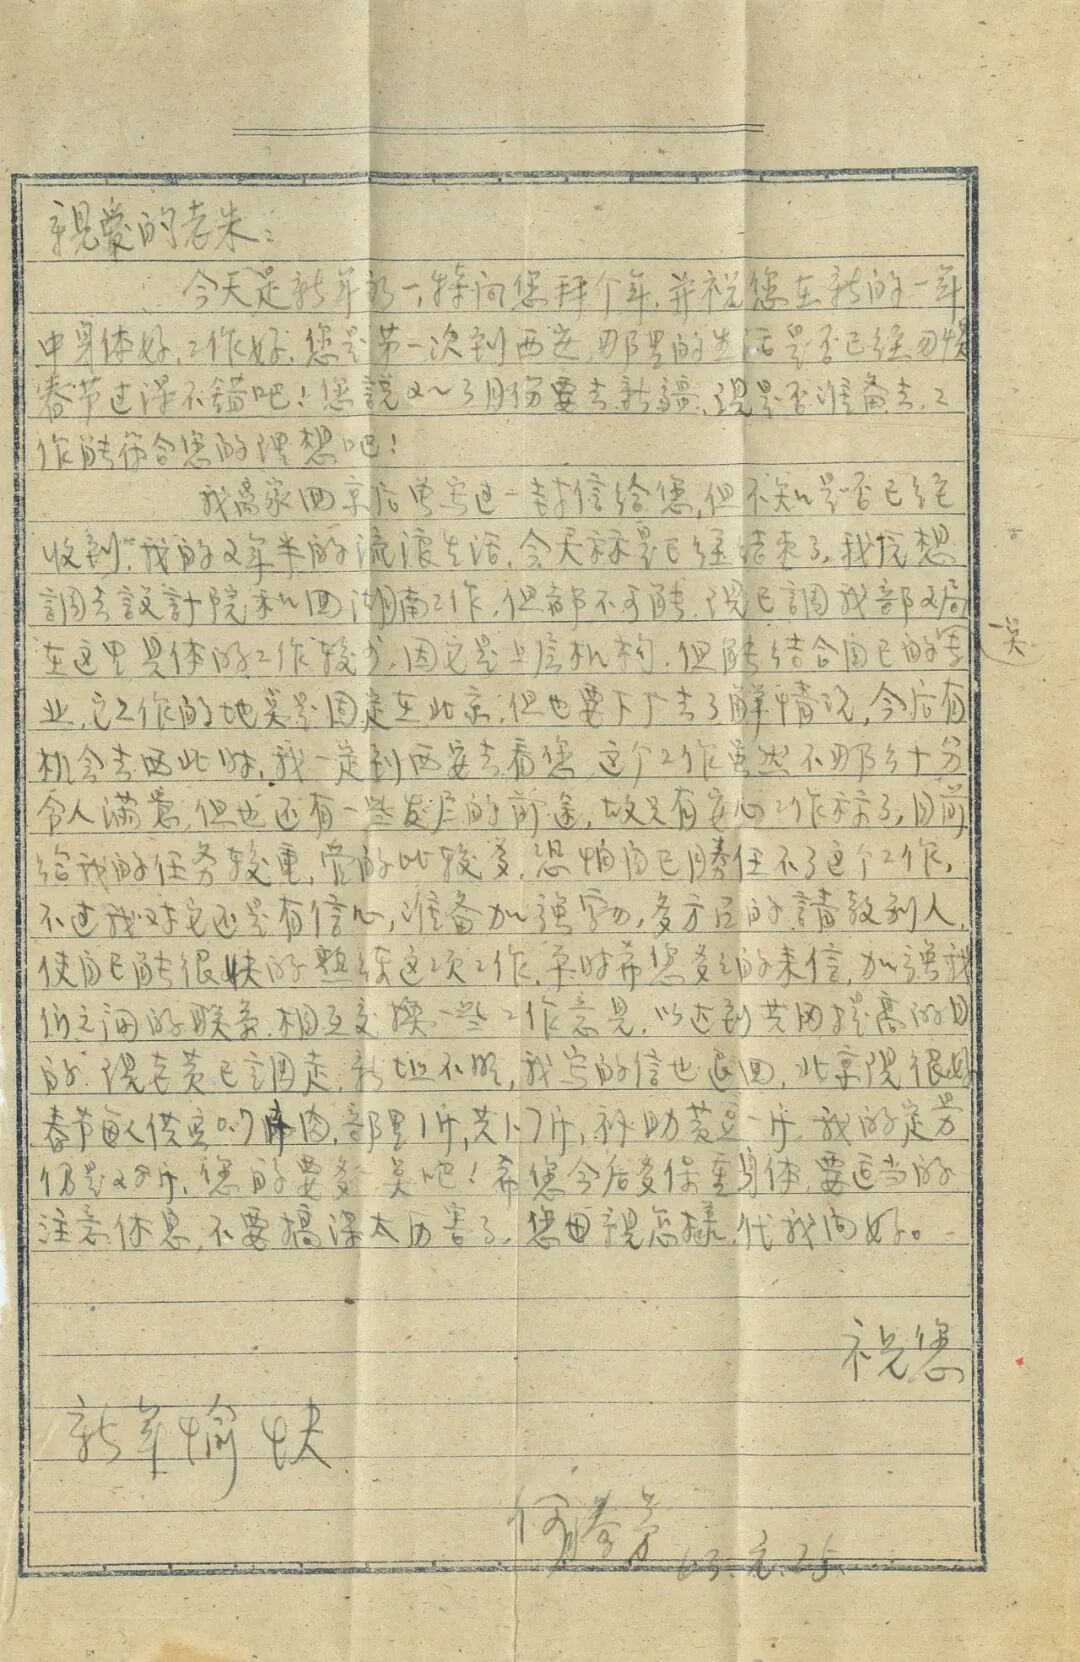 親爱的老朱：
今天是新年初一，特向您拜个年，并祝您在新的一年
中身体好，工作好，您是第一次到西安，那里的生活是否已経习慣
春节过得不錯吧！您説2～3月份要去新疆，現是否准备去，工
作能符合您的理想吧！
我离家回京后曾写过一封信给您，但不知是否已経
收到，我的2年半的流浪生活，今天祘是已経結束了，我拢想
調去設計院和回湖南工作，但都不可能，現已調我部2局
在这里具体的工作较少，因它是上层机构，但能結合自已的专
业，它工作的地奌是固定在北京，但也要下厂去了解情况，今后有
机会去西北时，我一定到西安去看您，这个工作虽然不那么十分
令人满意，但也还有一些发展的前途，故只有安心工作祘了，目前
给我的任务较重，管的比较多，恐怕自已胜任不了这个工作，
不过我对它还是有信心，准备加强学习，多方面的請教别人，
使自已能很快的熟练这项工作，平时希您多多的来信，加强我
们之间的联系，相互交換一些工作意見，以达到共同提高的目
的，現老黄已調走，新址不明，我写的信也退回，北京現很好
春节每人供应0.7斤肉，部里1斤，共1.7斤，补助黄豆一斤，我的定量
仍是28斤，您的要多一奌吧！希您今后多保重身体，要适当的
注意休息，不要搞得太历害了，您母親怎樣，代我问好。
祝您
新年愉快
何勝芳 63.元.25.